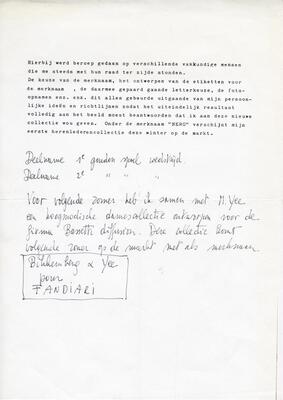 Hierbij werd beroep gedaan op verschillende vakkundige mensen
die me steeds met hun raad ter zijde stonden.
De keuze van de merknaam, het ontwerpen van de etiketten voor
de merknaam , de daarmee gepaard gaande letterkeuze, de foto-
opnamen enz. enz. dit alles gebeurde uitgaande van mijn persoon-
lijke ideën en richtlijnen zodat het uiteindelijk resultaat
volledig aan het beeld moest beantwoorden dat ik aan deze nieuwe
collectie wou geven. Onder de merknaam "NERO" verschijnt mijn
eerste herenlederencollectie deze winter op de markt.
Deelname 1e gouden spoel wedstrijd.
Deelname 2e " " "
Voor volgende zomer heb ik samen met M. Yee
een hoogmodische damescollectie ontworpen voor de
firma Bassetti diffusion. Deze collectie komt
volgende zomer op de markt met als merknaam
Bikkembergs & Yee
pour
FANDIARI